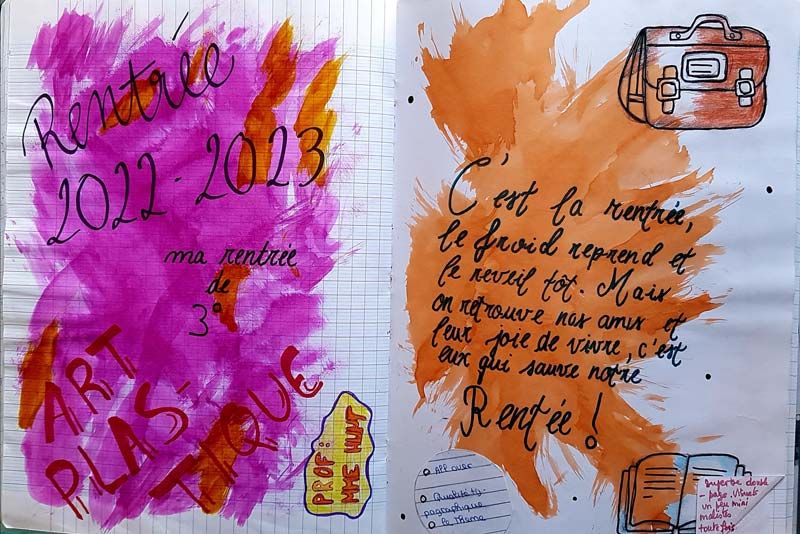 Rentrée
2022-2023
ma rentrée
de
3°
ART
PLAS-
TIQUE
PROF:
MME HUNT
C'est la rentrée,
le froid reprend et
le reveil tôt. Mais
on retrouve nos amis et
leur joie de vivre, c'est
eux qui sauve notre
Rentée !
All over
Qualité ty-
pographique
le thème
superbe double
- page. Visuels
un peu mini
malistes
toutefois